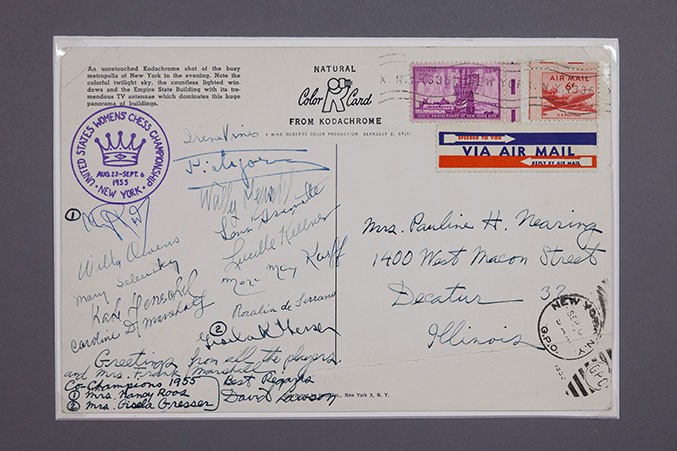 An unretouched Kodachrome shot of the busy
metropolis of New York in the evening. Note the
colorful twilight sky, the countless lighted win-
dows and the Empire State Building with its tre-
mendous TV antennae which dominates this huge
panorama of buildings.
NATURAL
Color Card
FROM KODACHROME
A MIKE ROBERTS COLOR PRODUCTION, BERKELEY 2, CALIF.
300TH ANNIVERSARY OF NEW YORK CITY
AIR MAIL
6¢
SPEEDED TO YOU
VIA AIR MAIL
REPLY BY AIR MAIL
UNITED STATES WOMENS' CHESS CHAMPIONSHIP
AUG. 23-SEPT. 6
1955
· NEW YORK ·
Irene Vines
①
Willa Owens
Mary Selensky
Karl Forster
Caroline D. Marshall
Wally Henschel
Lena Grumette
Lucille Kellner
Mona May Karff
Rosalia de Serrano
②
Gisela K Gresser
Greetings from all the players
and Mrs. Frank Marshall
Co-Champions 1955
① Mrs. Nancy Roos
② Mrs. Gisela Gresser
Best Regards
David Lawson
New York X, N. Y.
Mrs. Pauline H. Nearing
1400 West Macon Street
Decatur 32
Illinois
NEW YORK, N.Y.
G.P.O.
GPO